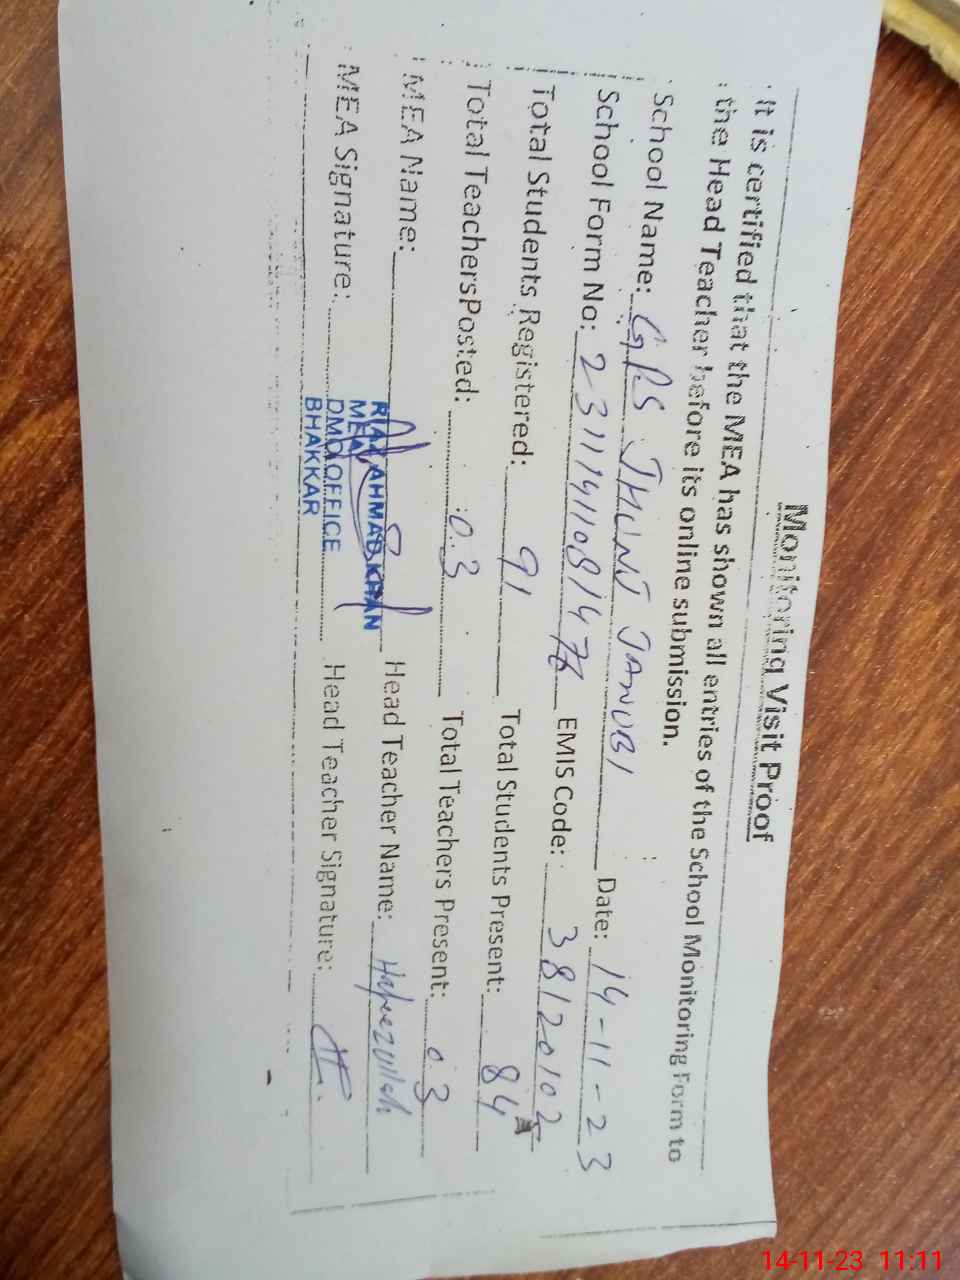 Monitoring Visit Proof
It is certified that the MEA has shown all entries of the School Monitoring Form to
the Head Teacher before its online submission.
School Name: GPS JHUNJ JANUBI Date: 14-11-23
School Form No: EMIS Code: 38120102
Total Students Registered: 91 Total Students Present: 84
Total TeachersPosted: 03 Total Teachers Present: 03
MEA Name: Head Teacher Name: Hafeezullah
RIAZ AHMAD KHAN
MEA
MEA Signature: Head Teacher Signature:
DMO OFFICE
BHAKKAR
14-11-23 11:11